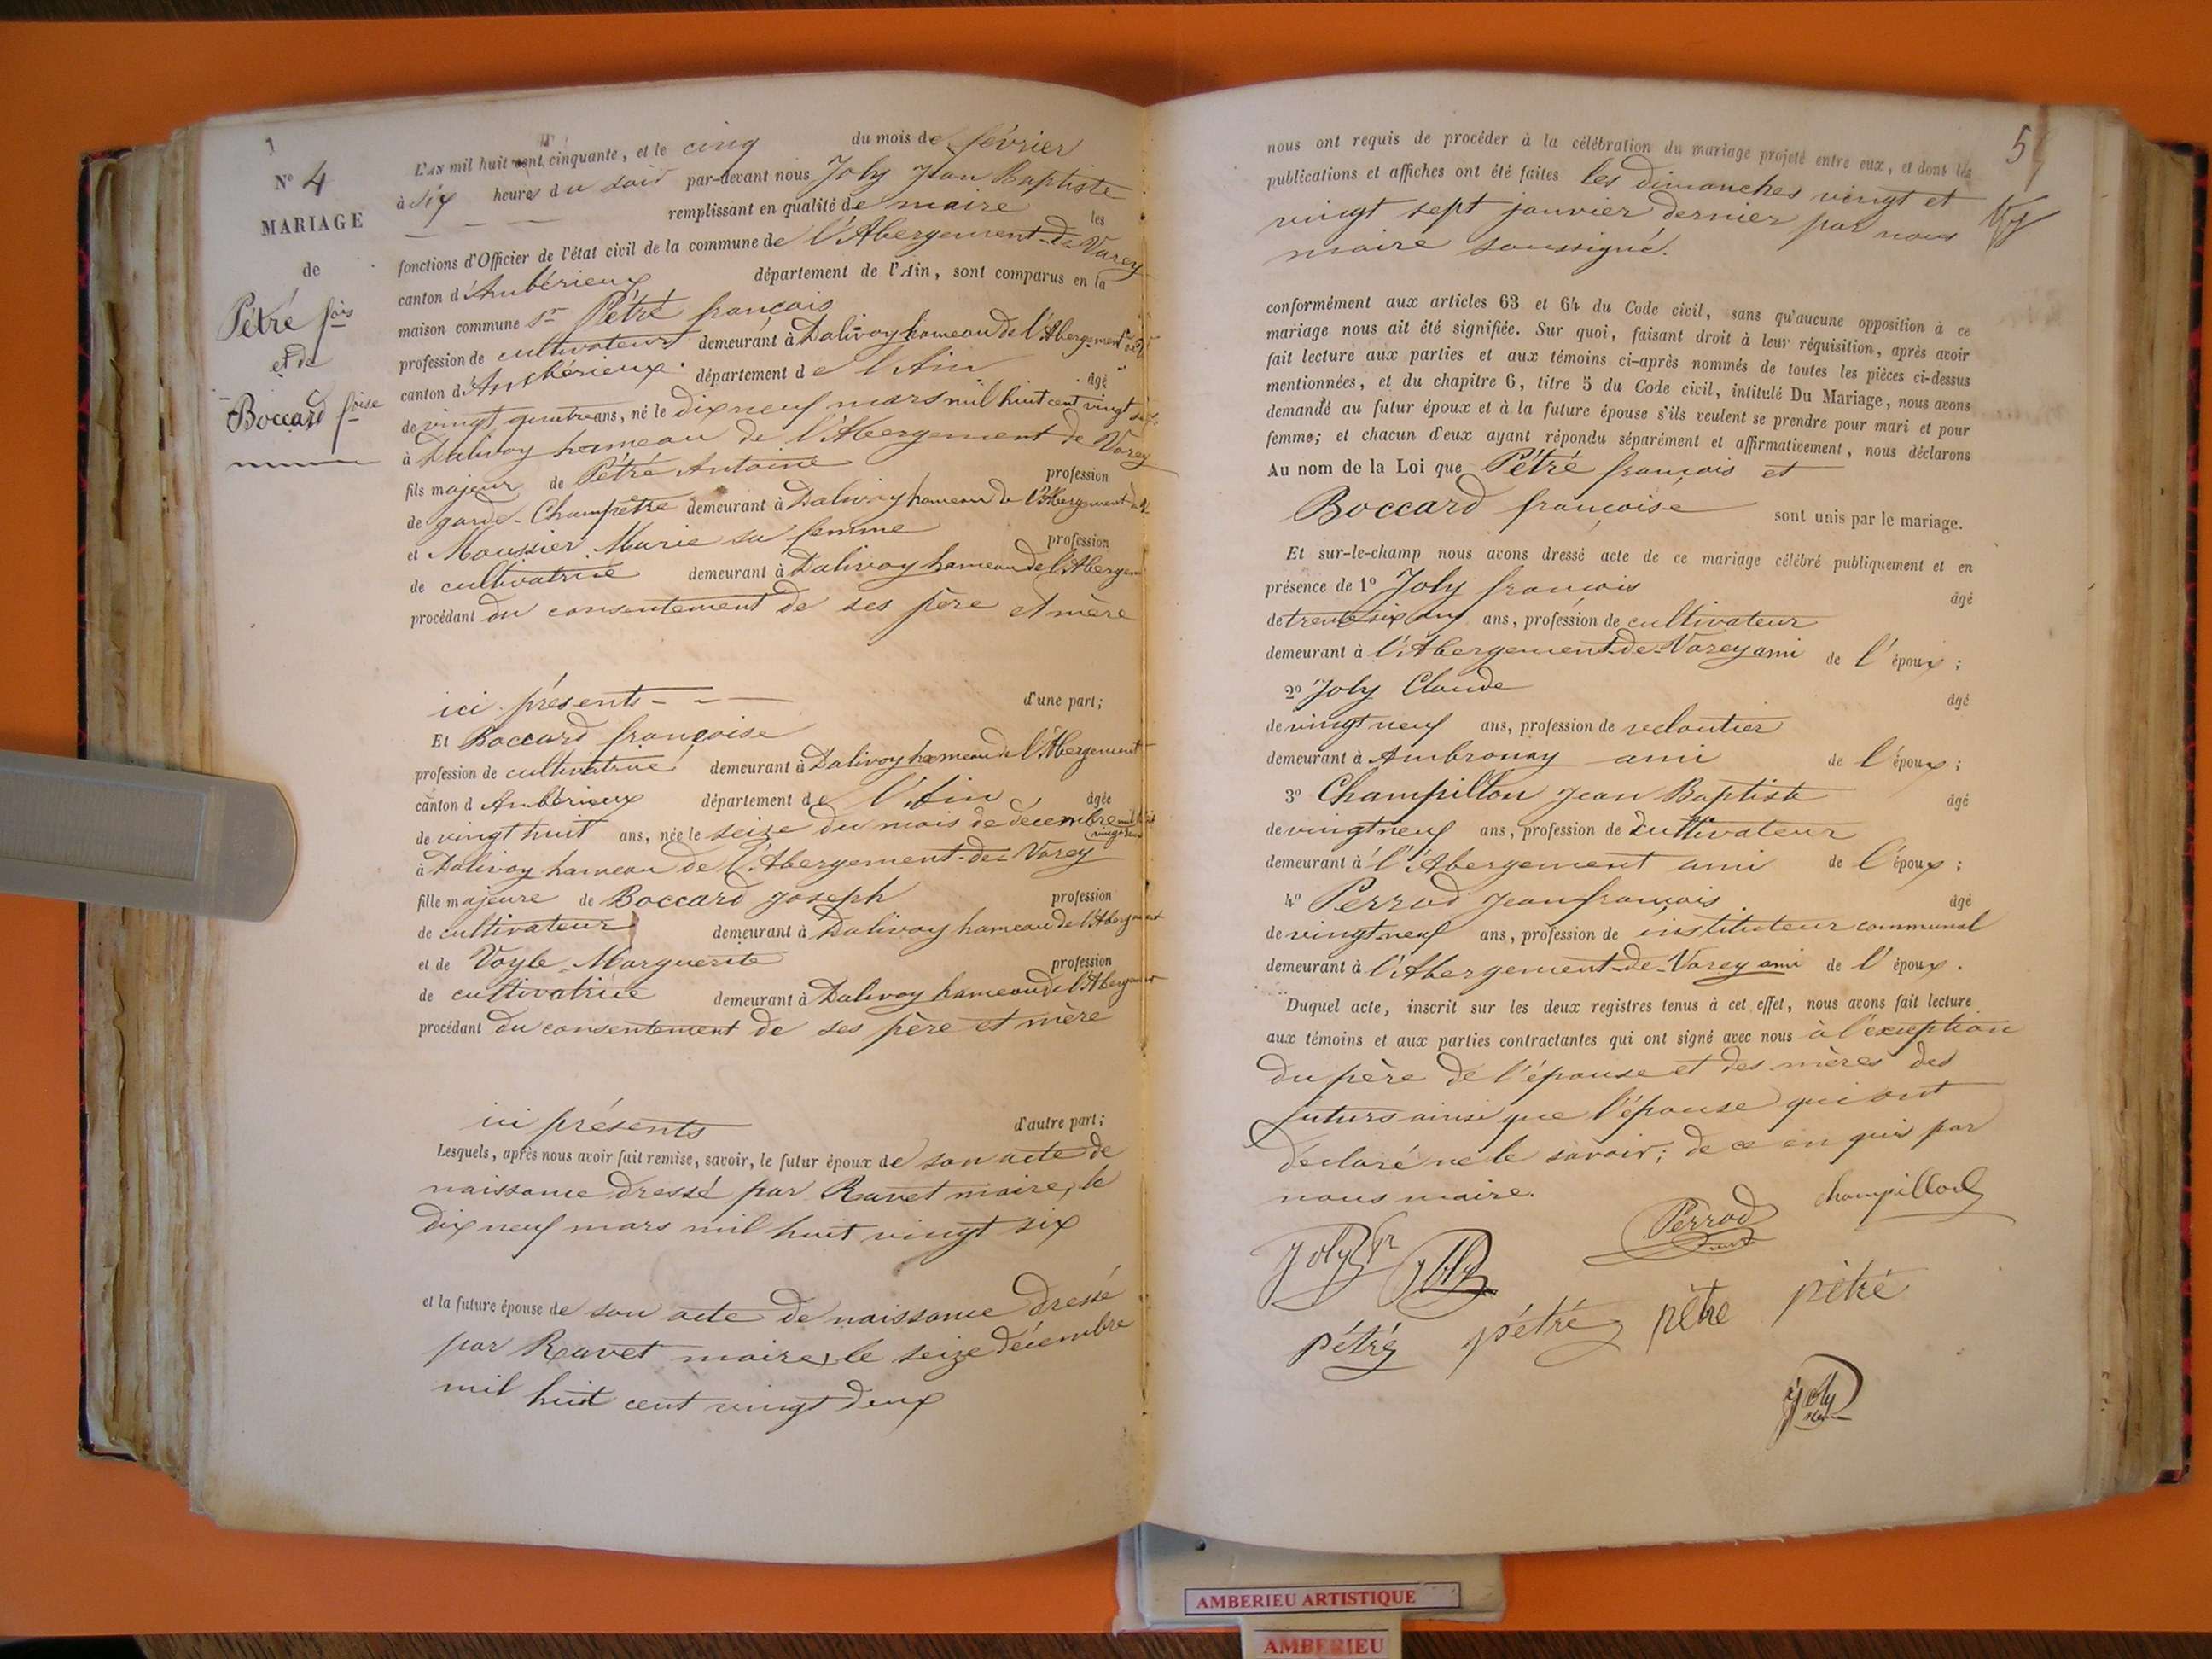 N° 4
MARIAGE
de
Pétré fois
et de
Boccard foise
L'AN mil huit cent cinquante, et le cinq du mois de février
à six heures du soir par-devant nous Joly Jean Baptiste
remplissant en qualité de maire les
fonctions d'Officier de l'état civil de la commune de l'Abergement-de-Varey
canton d'Ambérieux département de l'Ain, sont comparus en la
maison commune sr Pétré françois
profession de cultivateur demeurant à Dalivoy hameau de l'Abergement
canton d'Ambérieux département de l'Ain âgé
de vingt quatre ans, né le dix neuf mars mil huit cent vingt six
à Dalivoy hameau de l'Abergement de Varey
fils majeur de Pétré Antoine profession
de garde-Champêtre demeurant à Dalivoy hameau de l'Abergement
et Moussier Marie sa femme profession
de cultivatrice demeurant à Dalivoy hameau de l'Abergem
procédant du consentement de ses père et mère
ici présents d'une part;
Et Boccard françoise
profession de cultivatrice demeurant à Dalivoy hameau de l'Abergement
canton d Ambérieux département de l'Ain âgée
de vingt huit ans, née le seize du mois de décembre mil huit
vingt deux
à Dalivoy hameau de l'Abergement-de-Varey
fille majeure de Boccard Joseph profession
de cultivateur demeurant à Dalivoy hameau de l'Abergement
et de Voyle Marguerite profession
de cultivatrice demeurant à Dalivoy hameau de l'Abergement
procédant du consentement de ses père et mère
ici présents d'autre part;
Lesquels, après nous avoir fait remise, savoir, le futur époux de son acte de
naissance dressé par Ravet maire, le
dix neuf mars mil huit vingt six
et la future épouse de son acte de naissance dressé
par Ravet maire, le seize décembre
mil huit cent vingt deux
5
nous ont requis de procéder à la célébration du mariage projeté entre eux, et dont les
publications et affiches ont été faites les dimanches vingt et
vingt sept janvier dernier par nous
maire soussigné.
conformément aux articles 63 et 64 du Code civil, sans qu'aucune opposition à ce
mariage nous ait été signifiée. Sur quoi, faisant droit à leur réquisition, après avoir
fait lecture aux parties et aux témoins ci-après nommés de toutes les pièces ci-dessus
mentionnées, et du chapitre 6, titre 5 du Code civil, intitulé Du Mariage, nous avons
demandé au futur époux et à la future épouse s'ils veulent se prendre pour mari et pour
femme; et chacun d'eux ayant répondu séparément et affirmativement, nous déclarons
Au nom de la Loi que Pétré françois et
Boccard françoise sont unis par le mariage.
Et sur-le-champ nous avons dressé acte de ce mariage célébré publiquement et en
présence de 1° Joly françois âgé
de trente six ans ans, profession de cultivateur
demeurant à l'Abergement-de-Varey ami de l'époux;
2° Joly Claude âgé
de vingt neuf ans, profession de cloutier
demeurant à Ambronay ami de l'époux;
3° Champillon Jean Baptiste âgé
de vingt neuf ans, profession de cultivateur
demeurant à l'Abergement ami de l'époux;
4° Perrod Jean françois âgé
de vingt neuf ans, profession de instituteur communal
demeurant à l'Abergement-de-Varey ami de l'époux.
Duquel acte, inscrit sur les deux registres tenus à cet effet, nous avons fait lecture
aux témoins et aux parties contractantes qui ont signé avec nous à l'exception
du père de l'épouse et des mères des
futurs ainsi que l'épouse qui ont
déclaré ne le savoir; de ce enquis par
nous maire.
Perrod champillon
Joly fr Joly
pétré pétré pétre pétré
Joly
AMBERIEU ARTISTIQUE
AMBERIEU